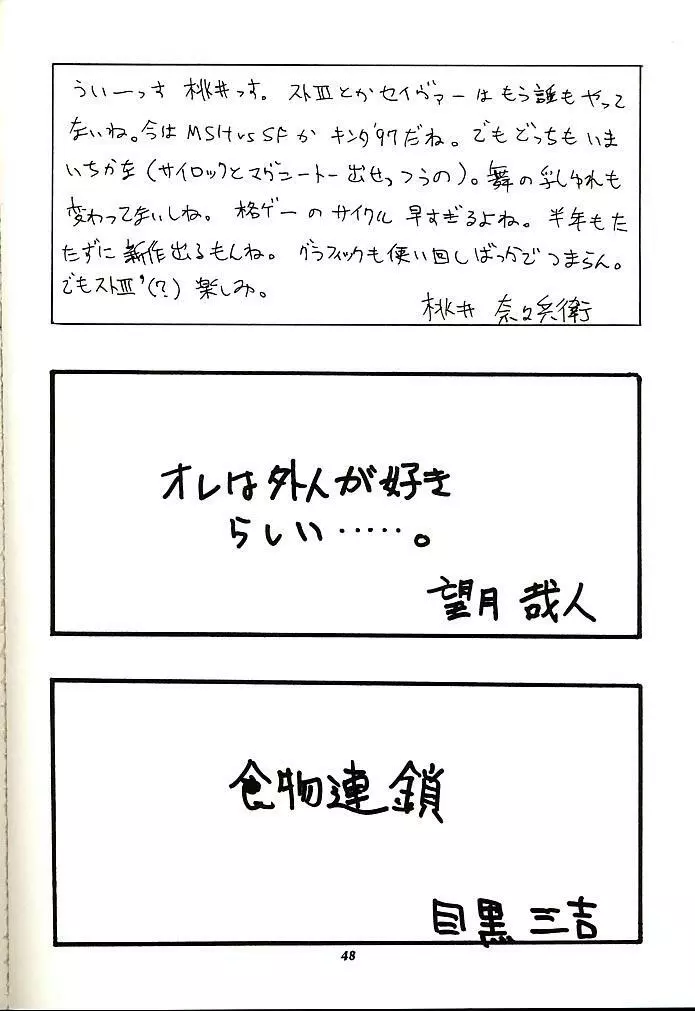 ういーっす 桃井っす。ストⅢとかセイヴァーはもう誰もやって
ないね。今はMSHvsSFかキング'97だね。でもどっちもいま
いちかな(サイロックとマグニートー出せっつうの)。舞の乳しゆれも
変わってないしね。格ゲーのサイクル早すぎるよね。半年もた
たずに新作出るもんね。グラフィックも使い回しばっかでつまらん。
でもストⅢ'(?)楽しみ。
桃井 奈々兵衛
オレは外人が好き
らしい・・・・・。
望月 哉人
食物連鎖
目黒 三吉
48